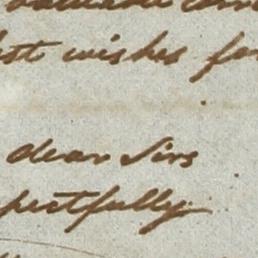 est wishes for
dear Sirs
pectfully